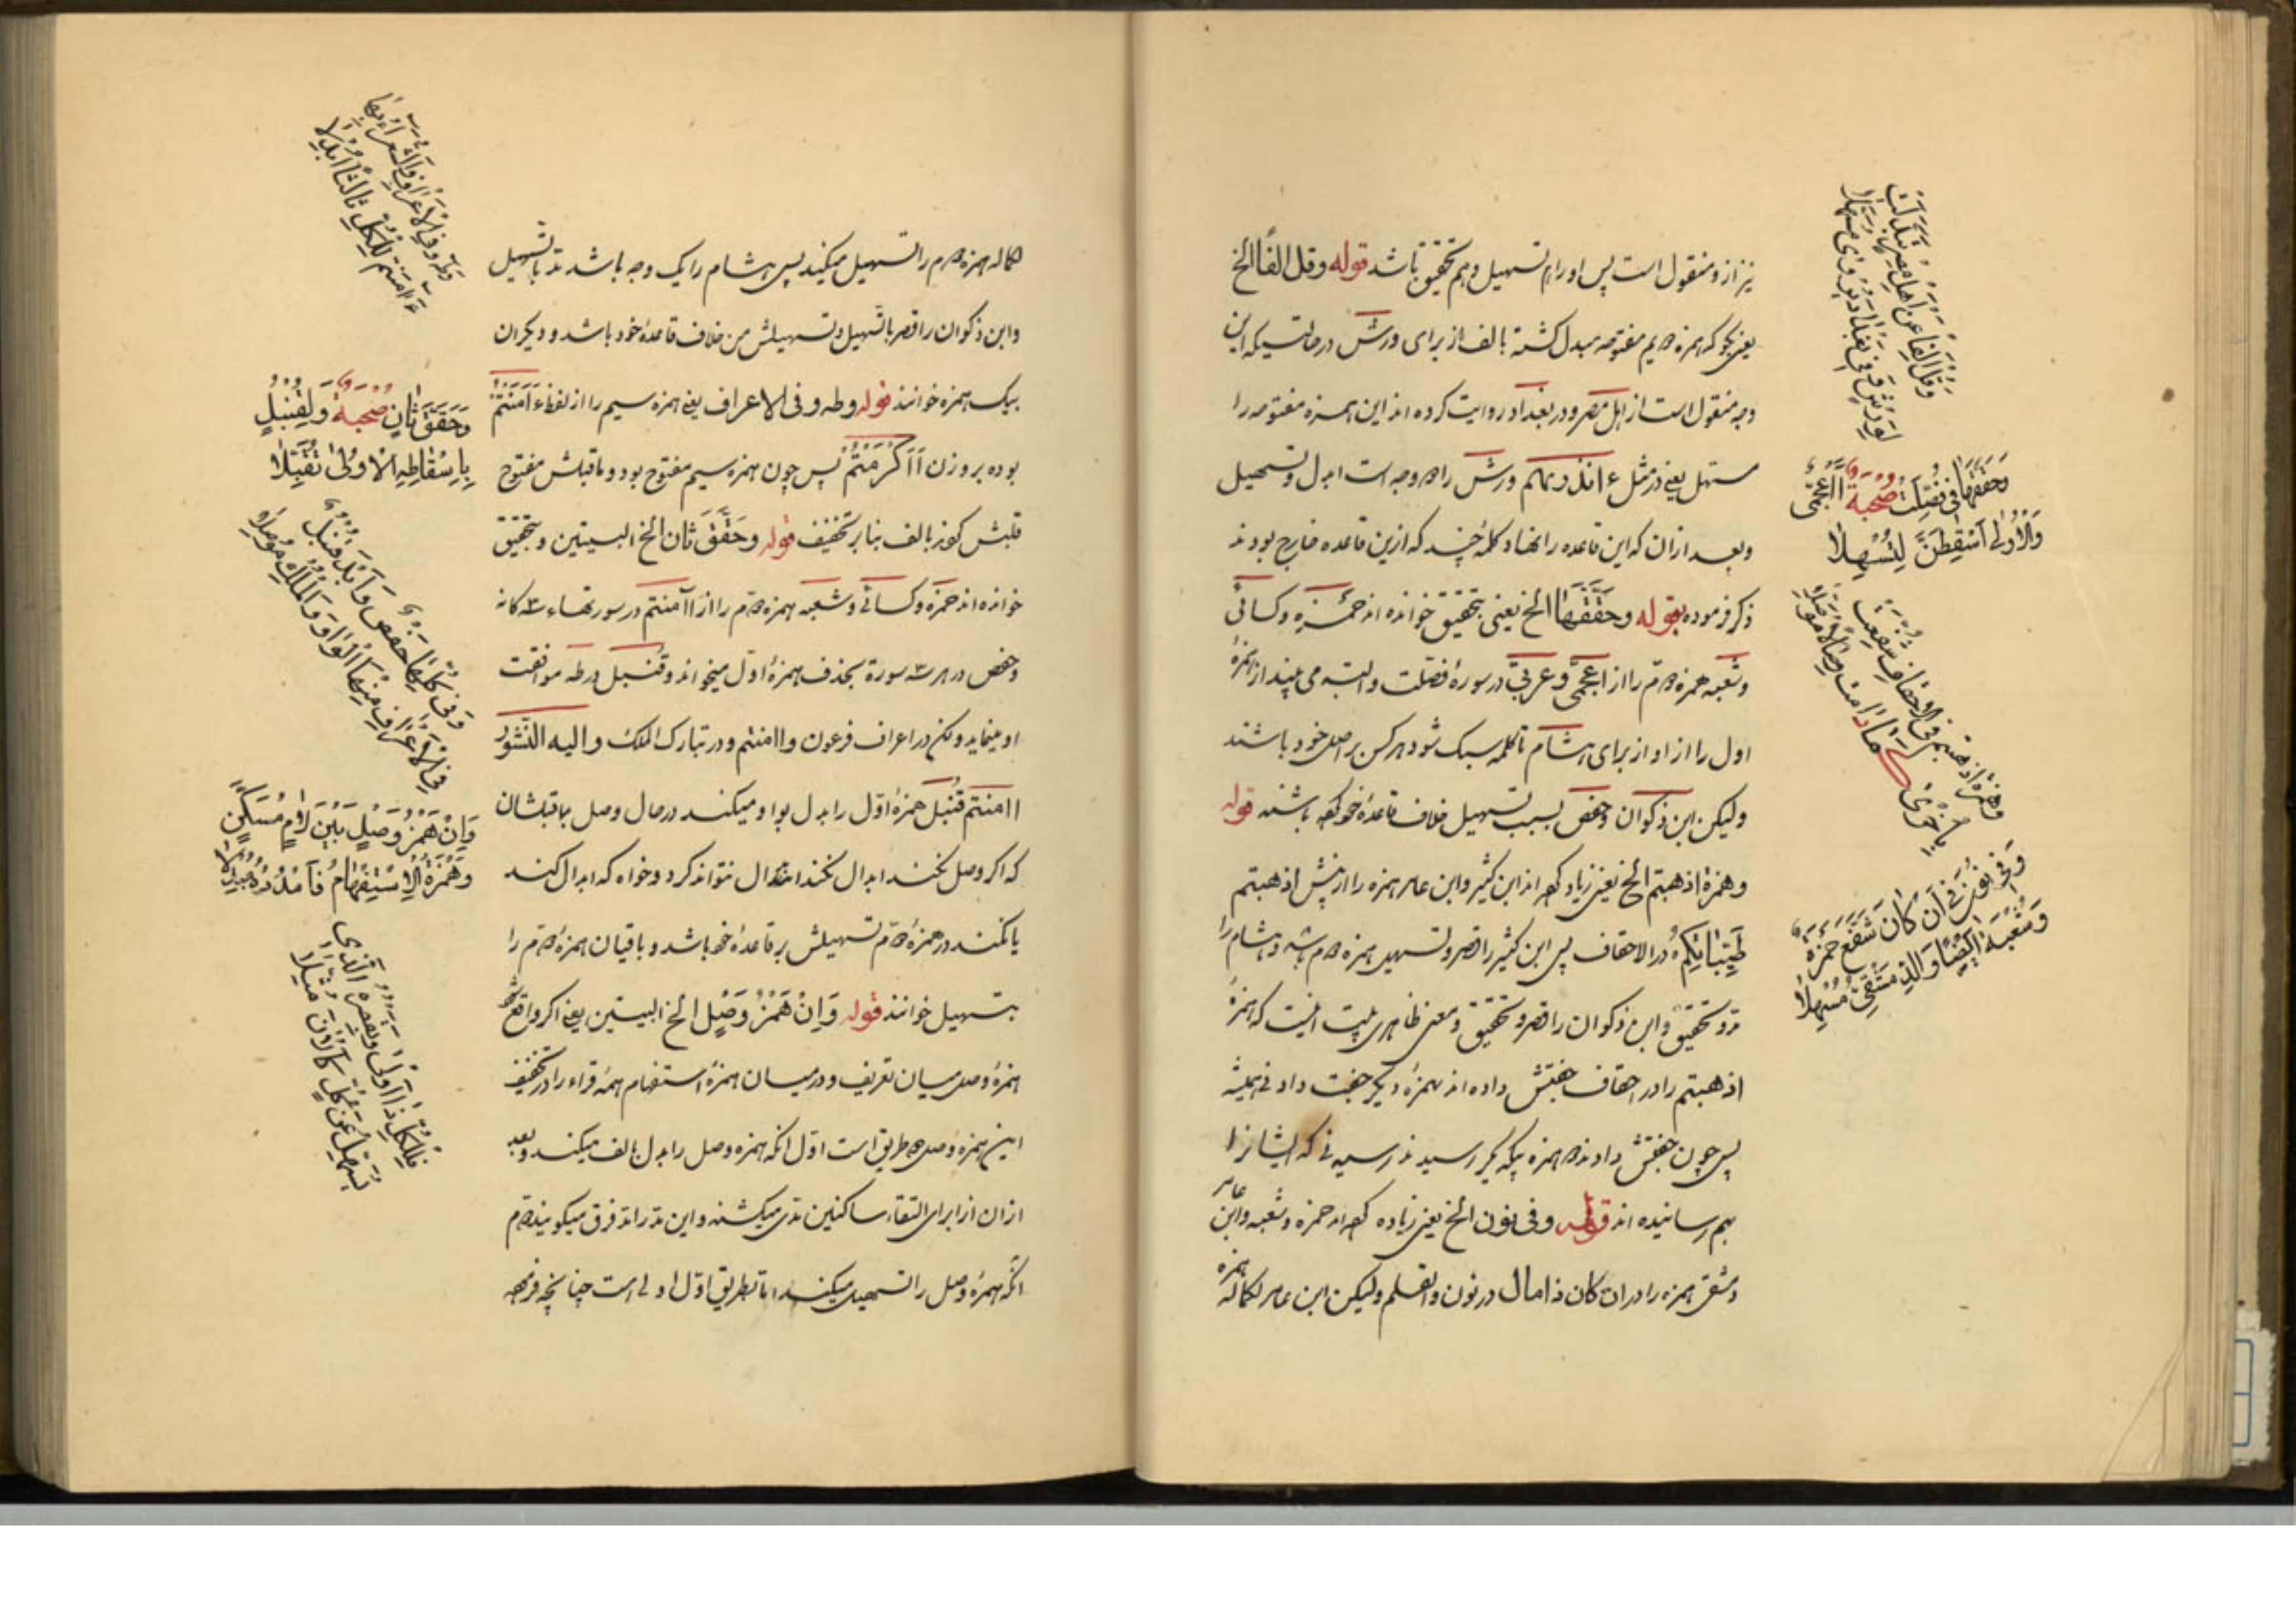 نیز از و منقول است پس او را هم تسهیل و هم تحقیق باشد قوله وقل الفا الخ
یعنی بگو که همزه دویم مفتوحه مبدل گشته بالف از برای ورش در حالتیکه این
وجه منقول است از اهل مصر و در بغداد روایت کرده اند این همزه مفتوحه را
مسهل یعنی در مثل ءانذرتهم ورش را دو وجه است ابدال و تسهیل
و بعد از ان که این قاعده را نهاد کلمهٔ چند که ازین قاعده خارج بودند
ذکر فرموده بقوله وحققها الخ یعنی بتحقیق خوانده اند حمزه و کسائی
و شعبه همزه دوم را از ااعجمی و عربی در سورهٔ فصلت و البته می بینداز همزهٔ
اول را از او از برای هشام تا کلمه سبک شود هر کس بر اصل خود باشند
ولیکن ابن ذکوان و حفص بسبب تسهیل خلاف قاعدهٔ خود باشند قوله
وهمزة اذهبتم الخ یعنی زیاد اند ابن کثیر و ابن عامر همزه را از پیش اذهبتم
طَیِّبَاتِکُم در الاحقاف پس ابن کثیر را قصر و تسهیل همزه دوم باشد و هشام را
مد و تحقیق و ابن ذکوان را قصر و تحقیق و معنی ظاهری بیت اینست که همزهٔ
اذهبتم را در احقاف جفتش داده اند بهمزهٔ دیگر جفت دادنی همیشه
پس چون جفتش دادند دو همزه بیکدیگر رسیدند رسیدنی که ایشانرا
بهم رسانیده اند قوله وفی نون الخ یعنی زیاده اند حمزه و شعبه و ابن عامر
دمشقی همزه را در ان کان ذا مال در نون والقلم ولیکن ابن عامر همزه
وَقُلْ أَلِفًا عَنْ أَهْلِ مِصْرَ تَبَدَّلَتْ
لِوَرْشٍ وَفِي بَغْدَادَ يُرْوَى مُسَهَّلَا
وَحَقَّقَهَا فِي فُصِّلَتْ صُحْبَةٌ أَأَعْجَمِيٌّ
وَالْأُولَى أَسْقِطَنَّ لِتُسْهِلَا
وَهَمْزَةُ أَذْهَبْتُمْ فِي الْأَحْقَافِ شُفِّعَتْ
بِأُخْرَى كَمَا دَامَتْ وِصَالًا مُوَصَّلَا
وَفِي نُونَ فِي أَنْ كَانَ شَفَّعَ حَمْزَةٌ
وَشُعْبَةُ أَيْضًا وَالدِّمَشْقِي مُسَهِّلَا
همزه دوم را تسهیل میکنید پس هشام را یک وجه باشد مد با تسهیل
و ابن ذکوان را قصر با تسهیل و تسهیلش من خلاف قاعدهٔ خود باشد و دیکران
بیک همزه خوانند قوله وطه وفی الاعراف یعنی همزه سیم را از لفظ ءَاَمَنْتُمْ
بوده بر وزن أَأَكْرَمْتُمْ پس چون همزه سیم مفتوح بود و ماقبلش مفتوح
قلبش کردند بالف بنابر تخفیف قوله وحَقَّقَ ثان الخ البیتین و بتحقیق
خوانده اند حمزه و کسائی و شعبه همزه دوم را از ءاآمنتم در سورتهاء سه کانه
و حفص در هر سه سورة بحذف همزهٔ اول میخواند و قنبل در طه موافقت
او مینماید و لکن در اعراف فرعون واامنتم و در تبارک الملک والیه النشور
اامنتم قنبل همزهٔ اول را بدل بواو میکند در حال وصل بماقبلشان
که اکر وصل نکند ابدال نکند ابدال نتواند کرد و خواه که ابدال کند
یا نکند در همزهٔ دوم تسهیلش بر قاعدهٔ خود باشد و باقیان همزهٔ دوم را
بتسهیل خوانند قوله وَاِنْ هَمْزُ وَصْلٍ الخ البیتین یعنی اکر واقع شود
همزهٔ وصل میان تعریف و در میان همزهٔ استفهام همهٔ قراء را در تخفیف
این همزه وصل دو طریق است اول انکه همزه وصل را بدل بالف میکند و بعد
از ان از برای التقاء ساکنین مدی میکشند و این مد را مد فرق میکویند دوم
انکه همزهٔ وصل را تسهیل میکند اما طریق اول اولی است چنانچه فرموده
وَطه وَفِي الْأَعْرَافِ وَالشُّعَرَاءِ بِهَا
ءَآمَنْتُمُ لِلْكُلِّ ثَالِثًا أُبْدِلَا
وَحَقَّقَ ثَانٍ صُحْبَةٌ وَلِقُنْبُلٍ
بِإِسْقَاطِهِ الْأُولَى بِطه تُقُبِّلَا
وَفِي كُلِّهَا حَفْصٌ وَأَبْدَلَ قُنْبُلٌ
فِي الْأَعْرَافِ مِنْهَا الْوَاوَ وَالْمُلْكِ مُوصِلَا
وَإِنْ هَمْزُ وَصْلٍ بَيْنَ لَامٍ مُسَكَّنٍ
وَهَمْزَةِ الِاسْتِفْهَامِ فَامْدُدْهُ مُبْدِلَا
فَلِلْكُلِّ ذَا أَوْلَى وَيَقْصُرُهُ الَّذِي
يُسَهِّلُ عَنْ كُلٍّ كَآلْآنَ مُثِّلَا